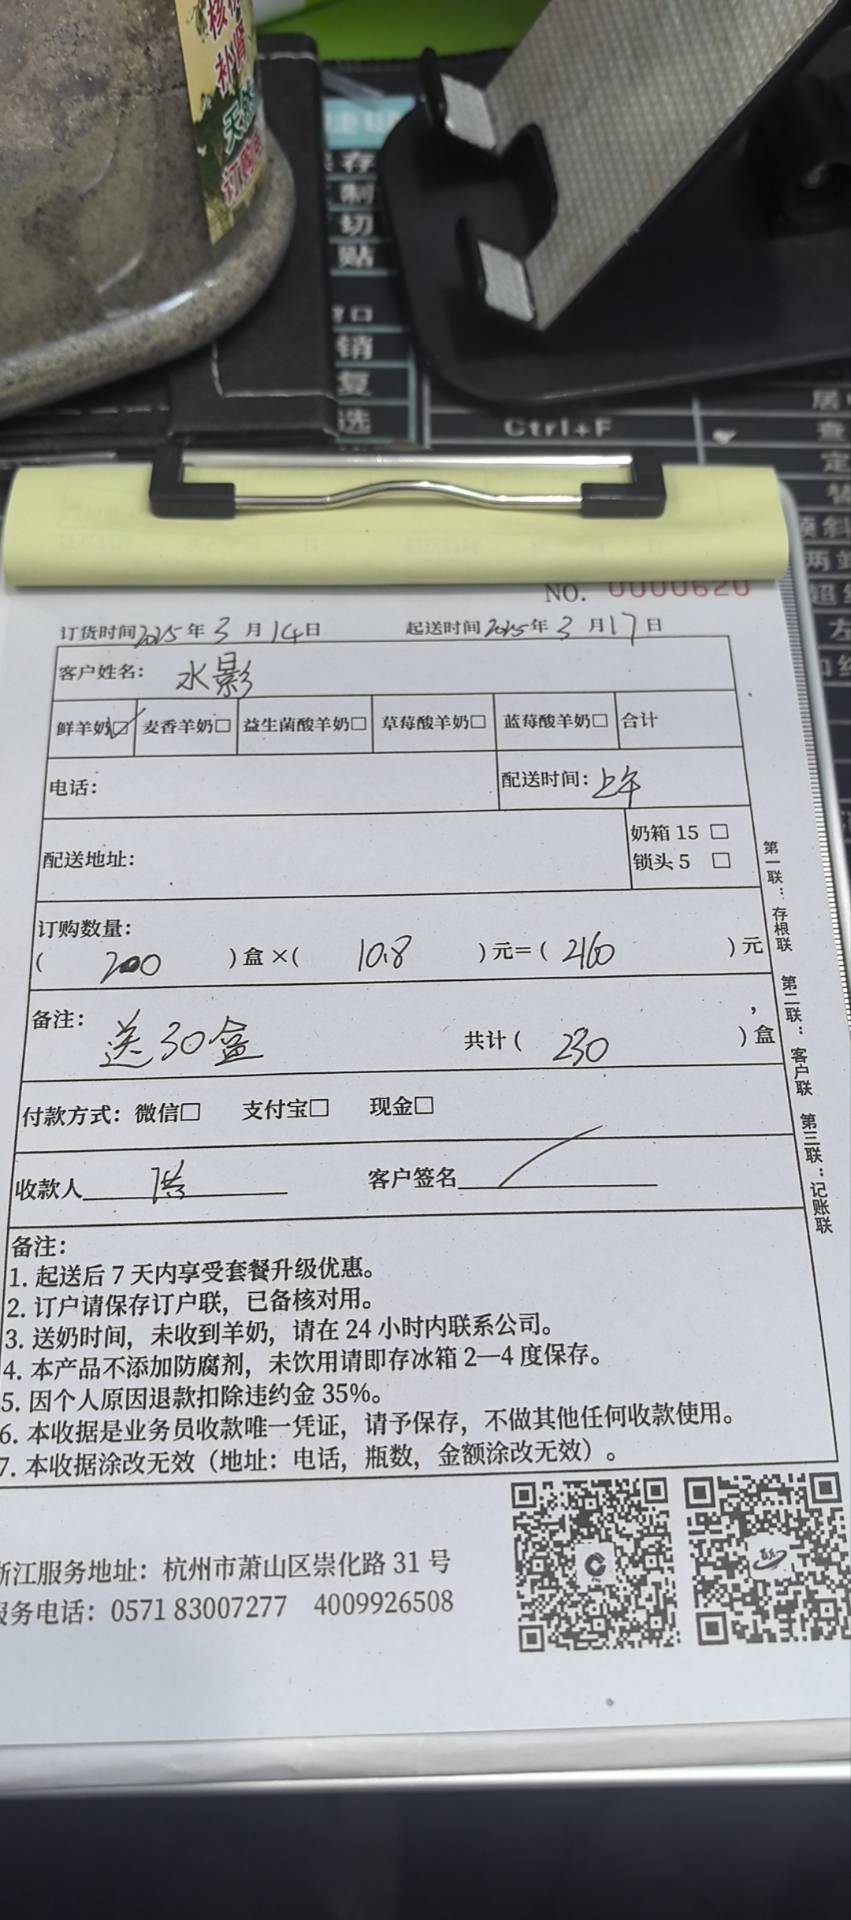 补肾
天然
订购
存
制
切
贴
销
复
选
Ctrl+F
查
定
替
NO. 0000620
订货时间2025年3月14日 起送时间2025年3月17日
客户姓名：水影
鲜羊奶☑ 麦香羊奶□ 益生菌酸羊奶□ 草莓酸羊奶□ 蓝莓酸羊奶□ 合计
电话： 配送时间：上午
配送地址： 奶箱 15 □
锁头 5 □
订购数量：
( 200 )盒×( 10.8 )元=( 2160 )元
备注：送30盒 共计( 230 )盒
付款方式：微信□ 支付宝□ 现金□
收款人 客户签名
备注：
1. 起送后 7 天内享受套餐升级优惠。
2. 订户请保存订户联，已备核对用。
3. 送奶时间，未收到羊奶，请在 24 小时内联系公司。
4. 本产品不添加防腐剂，未饮用请即存冰箱 2—4 度保存。
5. 因个人原因退款扣除违约金 35%。
6. 本收据是业务员收款唯一凭证，请予保存，不做其他任何收款使用。
7. 本收据涂改无效（地址：电话，瓶数，金额涂改无效）。
第一联：存根联 第二联：客户联 第三联：记账联
浙江服务地址：杭州市萧山区崇化路 31 号
服务电话：0571 83007277 4009926508